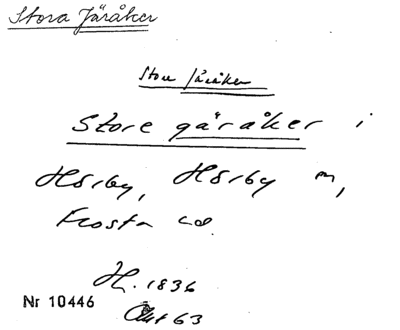 Stora Järåker
Store Järåker
Store gäråker i
Hörby, Hörby sn,
Frosta hd.
H. 1836
Nr 10446
63